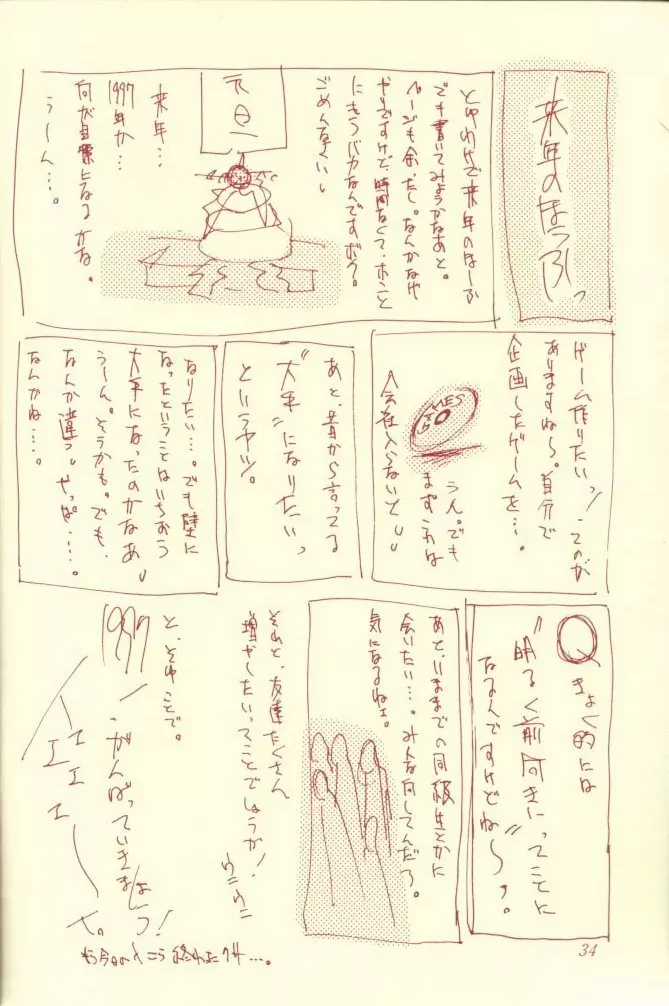 来年のほうふっ
とゆわけで来年のほーふ
でも書いてみようかなあと。
ページも余ったし。なんかなげ
やりですけど、時間なくて、ホント
にもうバカなんですボク。
ごめんなさいし
元旦
来年…
1997年か…
何が目標になるかな。
うーん…。
ゲーム作りたいっ！てのが
ありますね〜。自分で
企画したゲームを…。
GAMES
うん。でも
まずこれは
会社入らないとしし
あと、昔から言ってる
"大手"になりたいっ
というヤツ。
なりたい…。でも壁に
なったということはいちおう
大手になったのかなあし
うーん。そうかも。でも、
なんか違うし やっぱ……。
なんかね……。
Qきょく的には
"明るく前向きに"ってことに
なるんですけどね〜っ。
あと、いままでの同級生とかに
会いたい…。みんな何してんだろ。
気になるねェ。
それと、友達たくさん
増やしたいってことでしょうか！
ウニウニ
と、そゆことで。
1997
がんばっていきましょっ！
エエエ
34